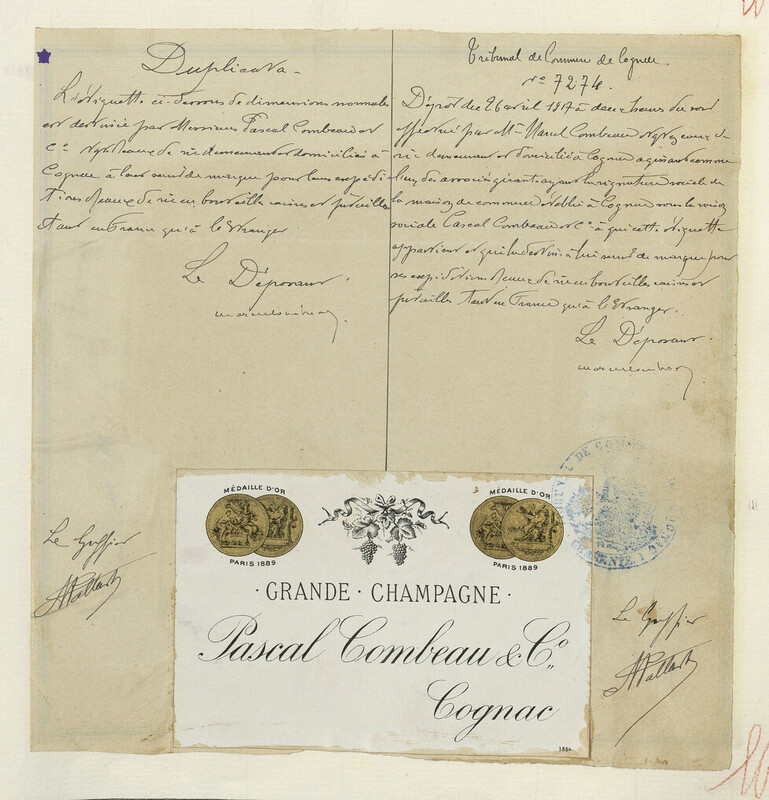 Duplicata
L'étiquette ci-dessous de dimensions normales
est destinée par Messieurs Pascal Combeau et
Cº Nég. en eaux de vie demeurant et domiciliés à
Cognac à leur servir de marque pour leurs expédi
tions d'eaux de vie en bouteilles caisses et futailles
tant en France qu'à l'Etranger
Le Déposant
Tribunal de Commerce de Cognac
Nº 7274.
Dépôt du 26 avril 1917 à deux heures du soir
effectué par Mr Marcel Combeau nég. eaux de
vie demeurant et domicilié à Cognac agissant comme
l'un des associés gérant ayant la signature sociale de
la maison de commerce établie à Cognac sous la raison
sociale Pascal Combeau et Cº à qui cette étiquette
appartient et qui la destine à lui servir de marque pour
ses expéditions d'eaux de vie en bouteilles caisses et
futailles tant en France qu'à l'Etranger.
Le Déposant
MÉDAILLE D'OR
PARIS 1889
MÉDAILLE D'OR
PARIS 1889
· GRANDE · CHAMPAGNE ·
Pascal Combeau & Cº
Cognac
1884
Le Greffier
Le Greffier